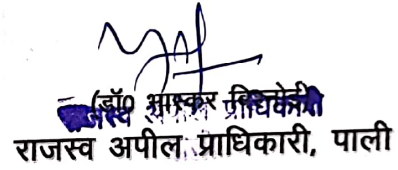 (डॉ० भास्कर बिश्नोई)
राजस्व अपील प्राधिकारी
राजस्व अपील प्राधिकारी, पाली